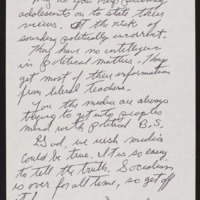 adolescents on to state their
views. At the risk of
sounding politically incorrect.
They have no intelligence
in political matters. They
get most of their information
from liberal teachers.
You the media are always
trying to get into peoples
mind with political B.S.
God, we wish media
could be true. It is so easy
to tell the truth. Socialism
is over for all time, so get off
it!